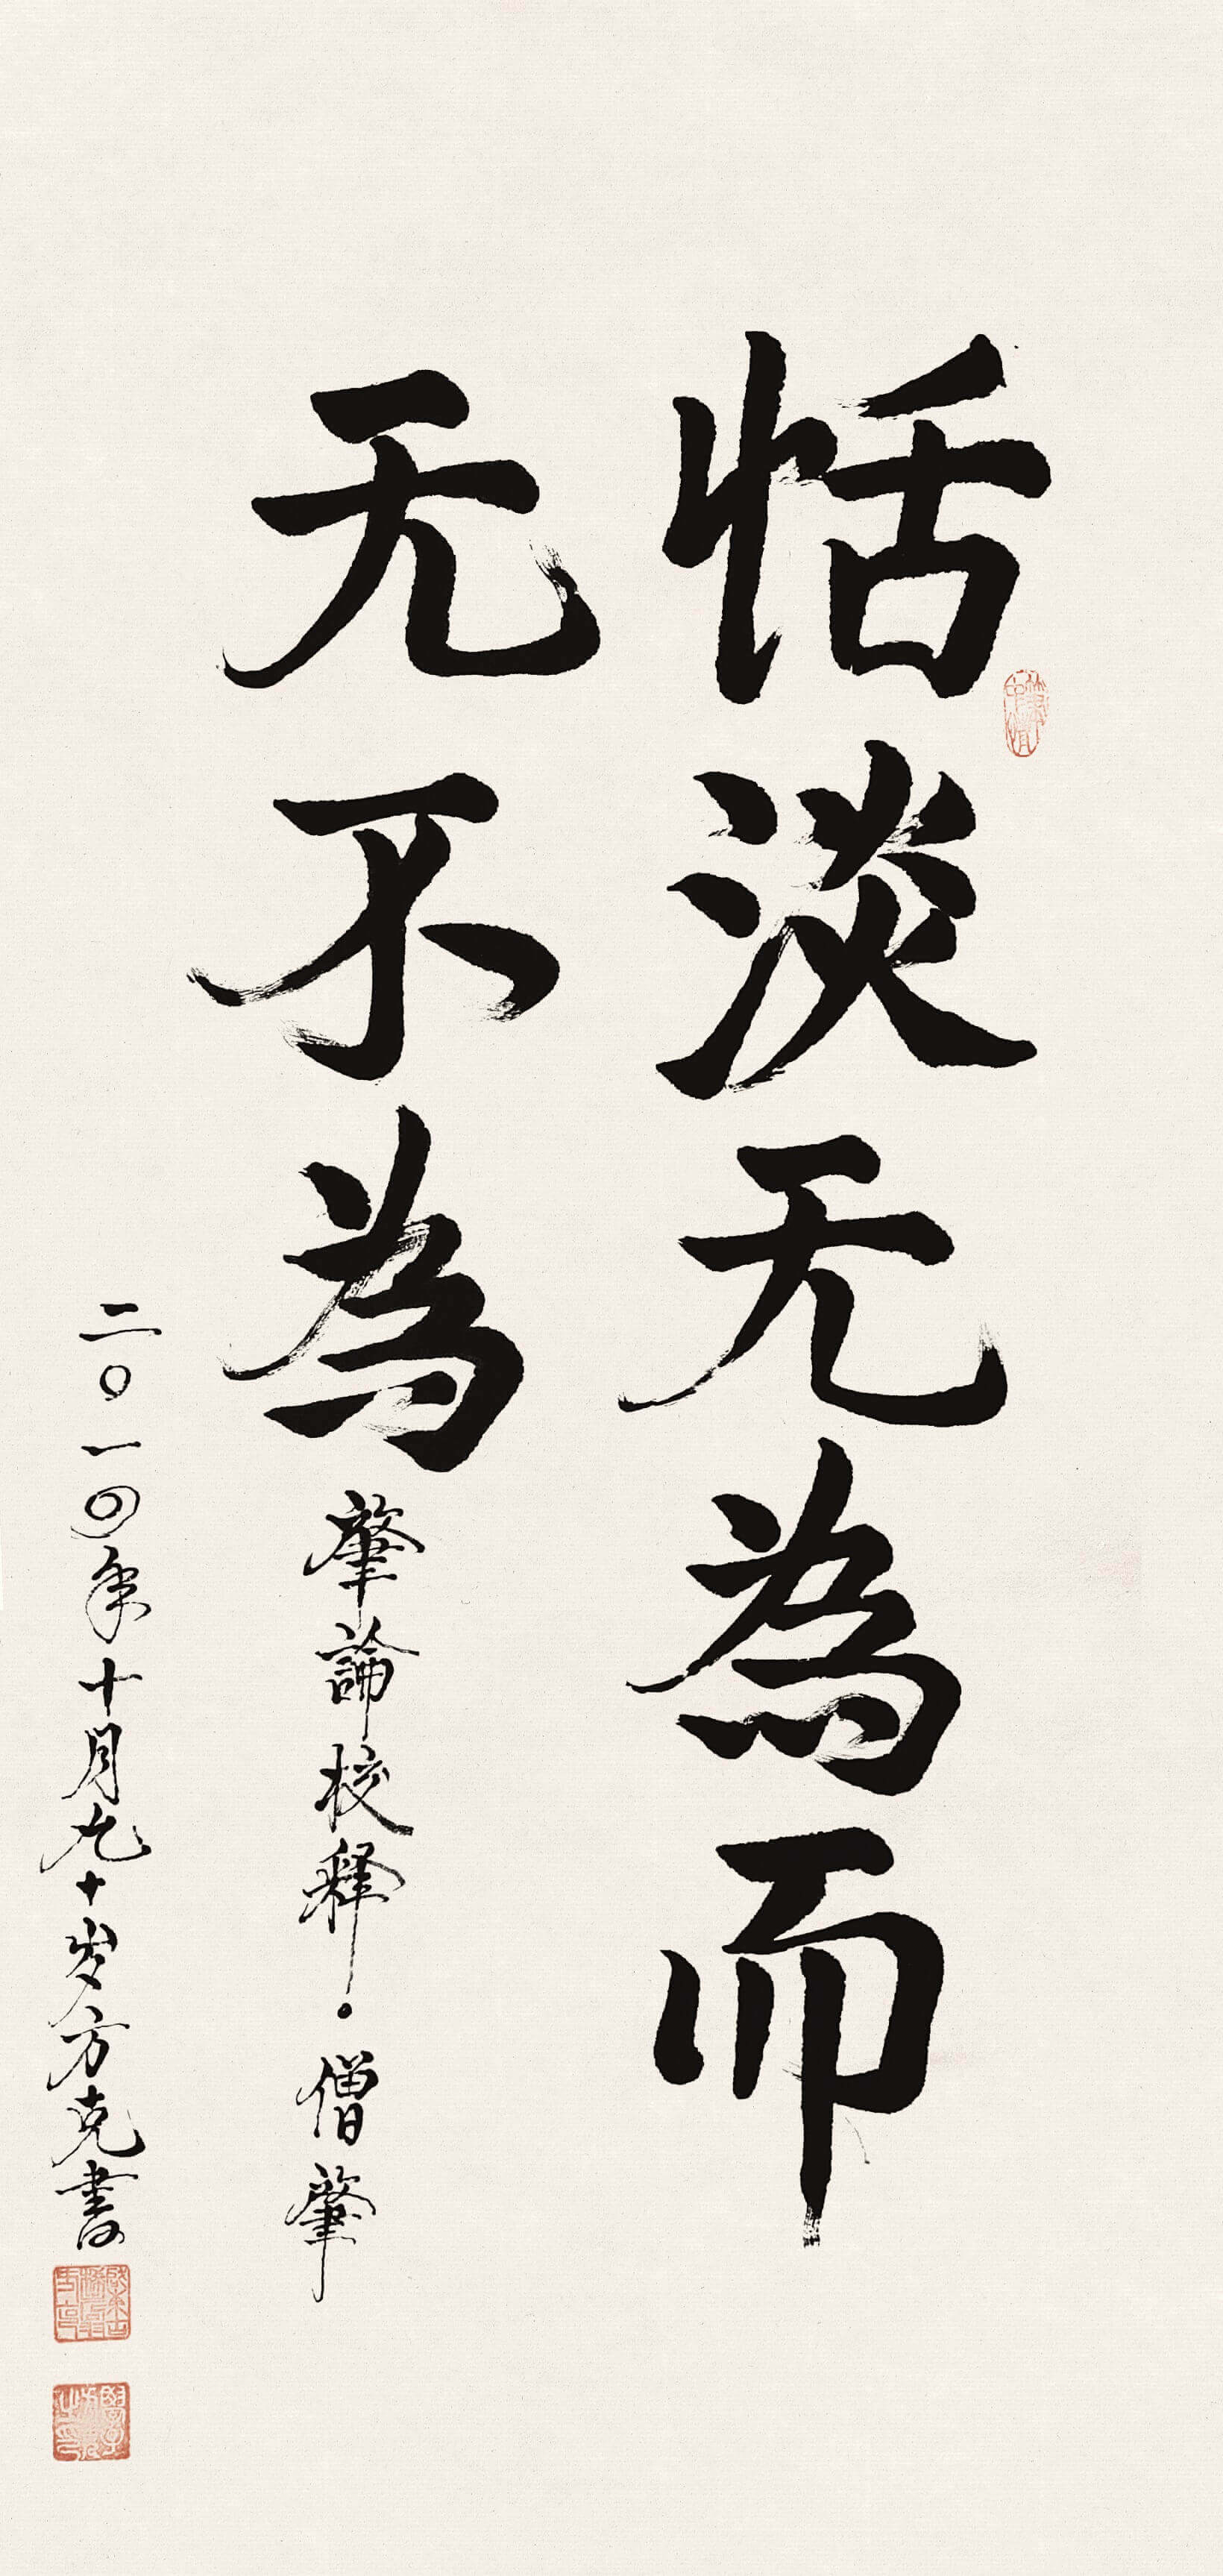 恬淡无為而
无不為
肇論校释·僧肇
二〇一四年十月九十岁方克書